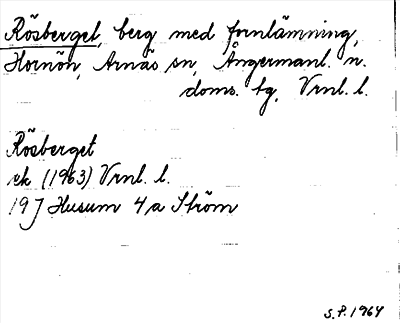 Rösberget, berg med fornlämning,
Hornön, Arnäs sn, Ångermanl. n.
doms. tg, Vrnl. l.
Rösberget
ek (1963) Vrnl. l.
19J Husum 4a Ström
S.P. 1964